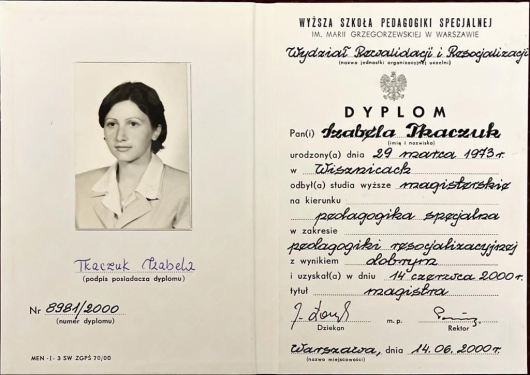 Tkaczuk Izabela
(podpis posiadacza dyplomu)
Nr 8981/2000
(numer dyplomu)
MEN - I - 3 SW ZGPŚ 70/00
WYŻSZA SZKOŁA PEDAGOGIKI SPECJALNEJ
IM. MARII GRZEGORZEWSKIEJ W WARSZAWIE
Wydział Rewalidacji i Resocjalizacji
(nazwa jednostki organizacyjnej uczelni)
DYPLOM
Pan(i) Izabela Tkaczuk
(imię i nazwisko)
urodzony(a) dnia 29 marca 1973r.
w Wisznicach
odbył(a) studia wyższe magisterskie
na kierunku
pedagogika specjalna
w zakresie
pedagogiki resocjalizacyjnej
z wynikiem dobrym
i uzyskał(a) w dniu 14 czerwca 2000r.
tytuł magistra
Dziekan m. p. Rektor
Warszawa, dnia 14.06.2000r.
(nazwa miejscowości)